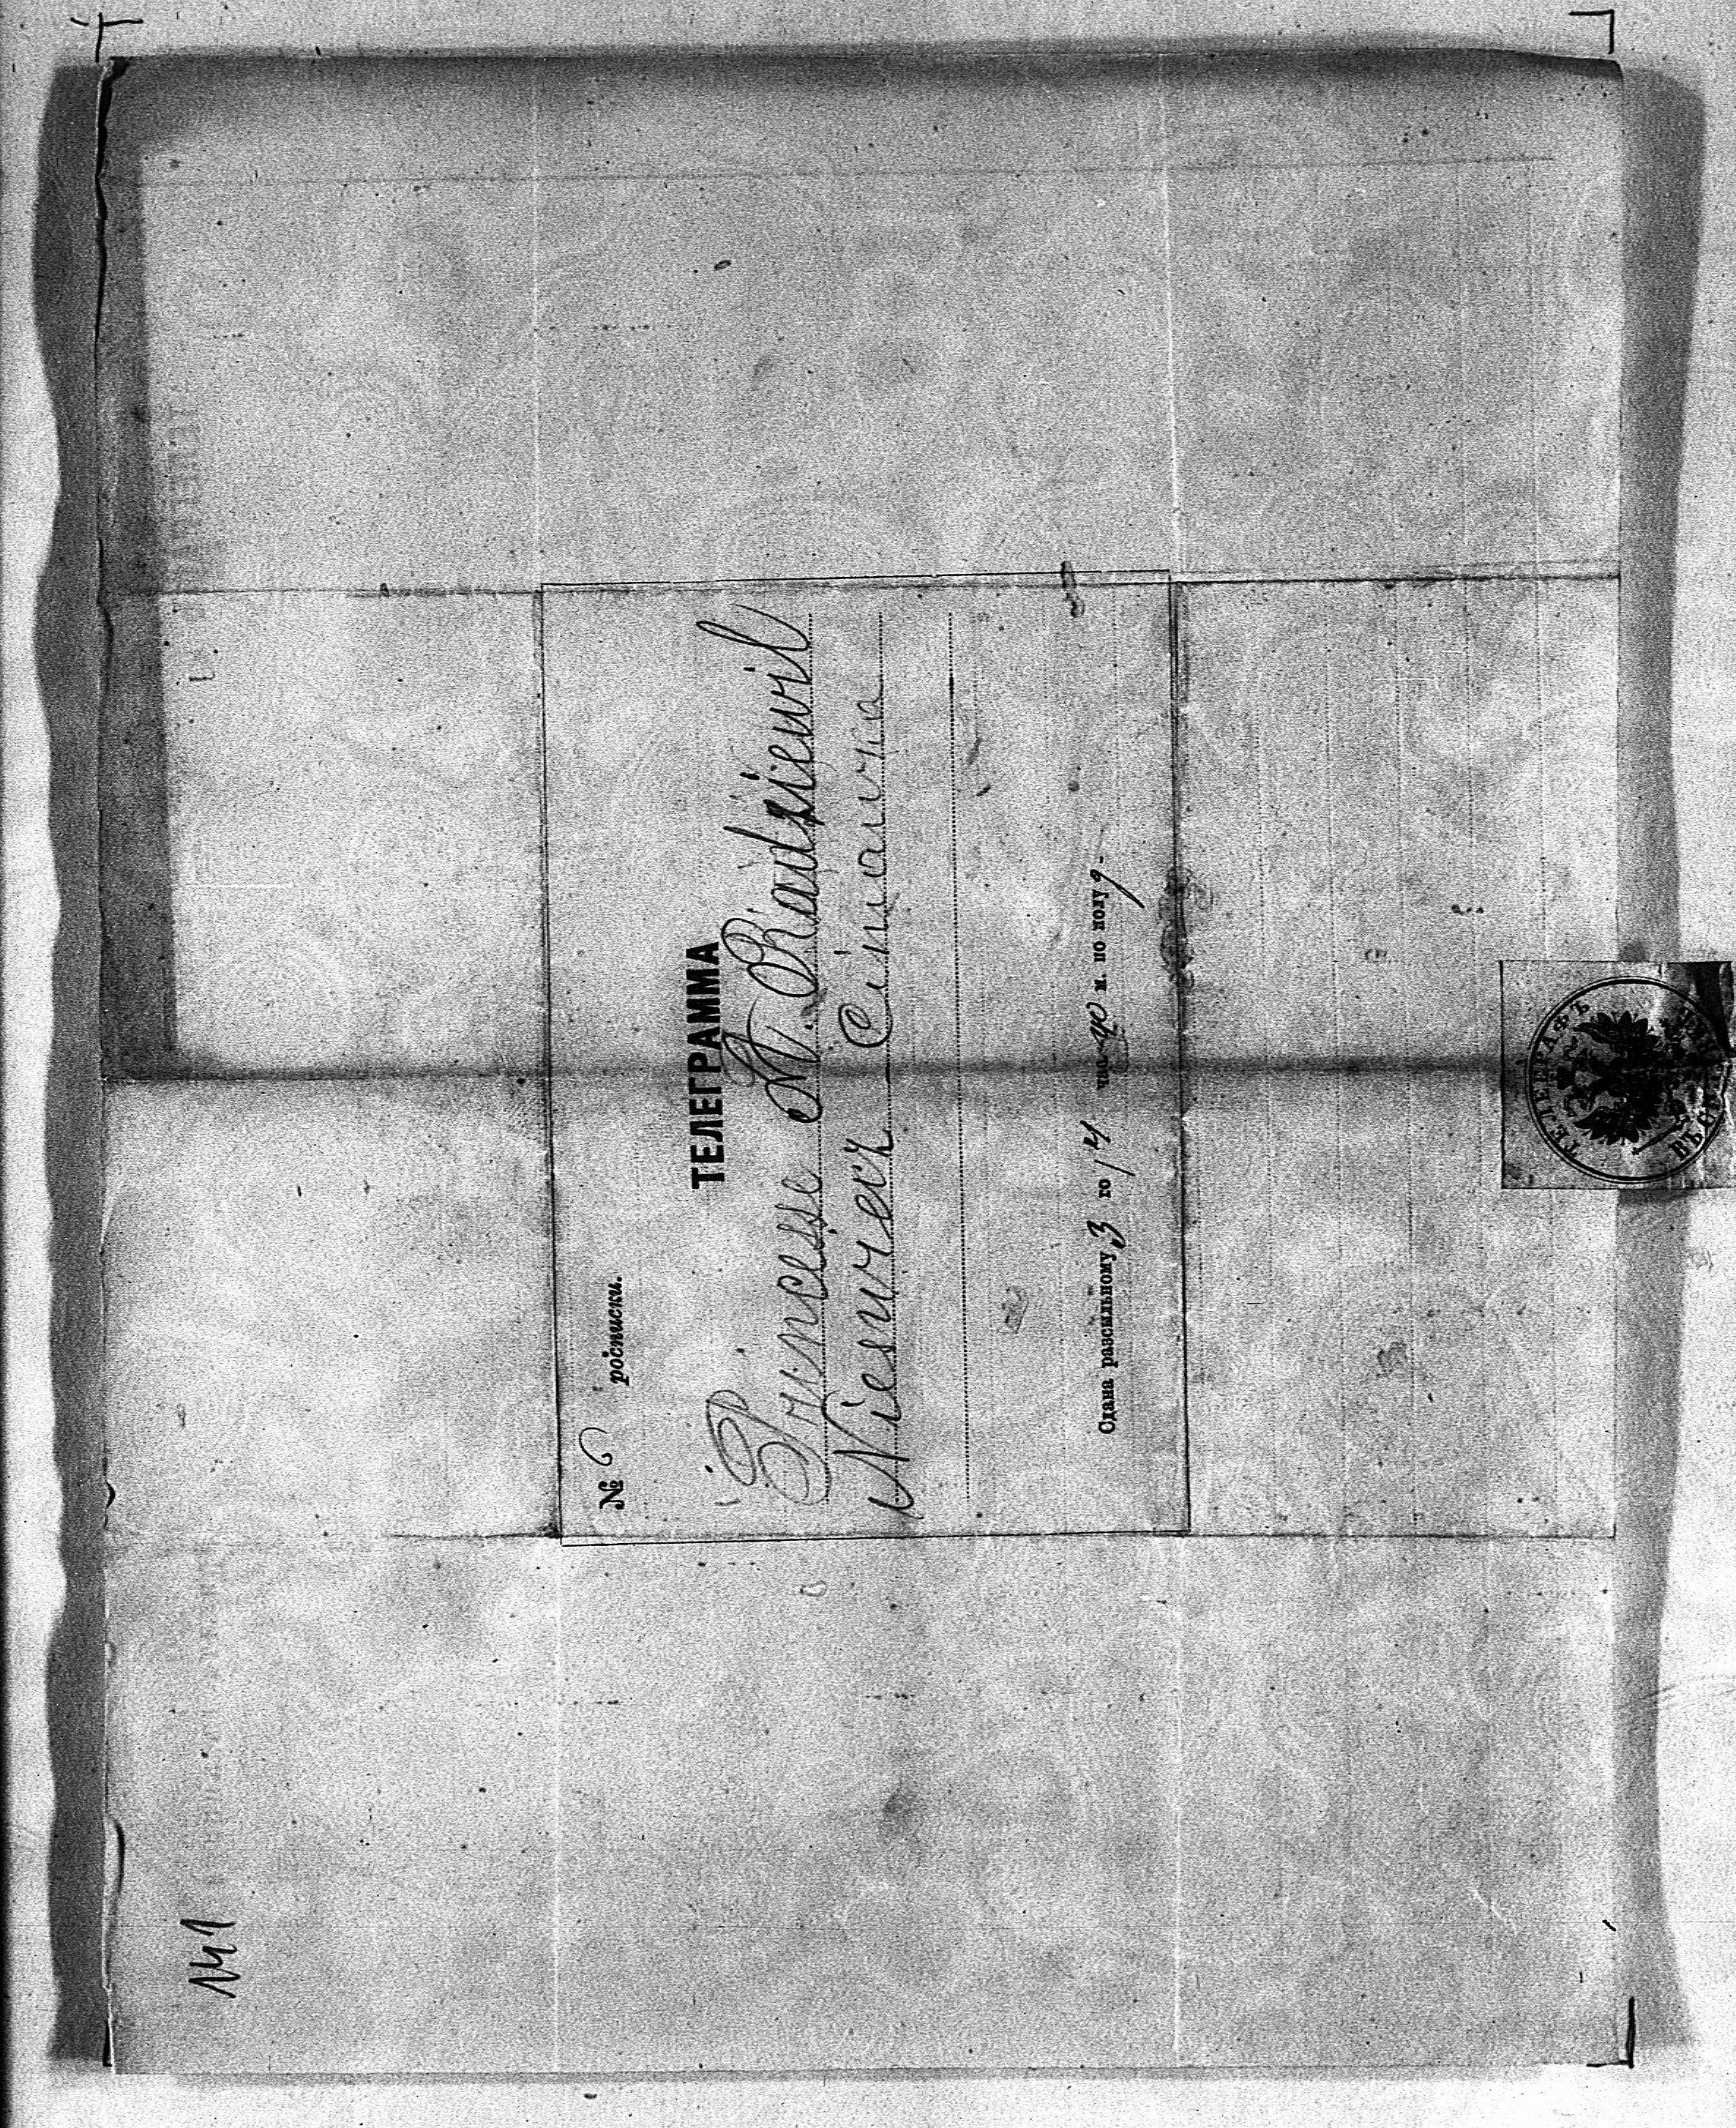 № 6 росписки.
ТЕЛЕГРАММА
Princesse A. Radziewil
Nieswiecz
Сдана разсыльному 3 го 14 час 40 м. по полуд-
ТЕЛЕГРАФЪ
141